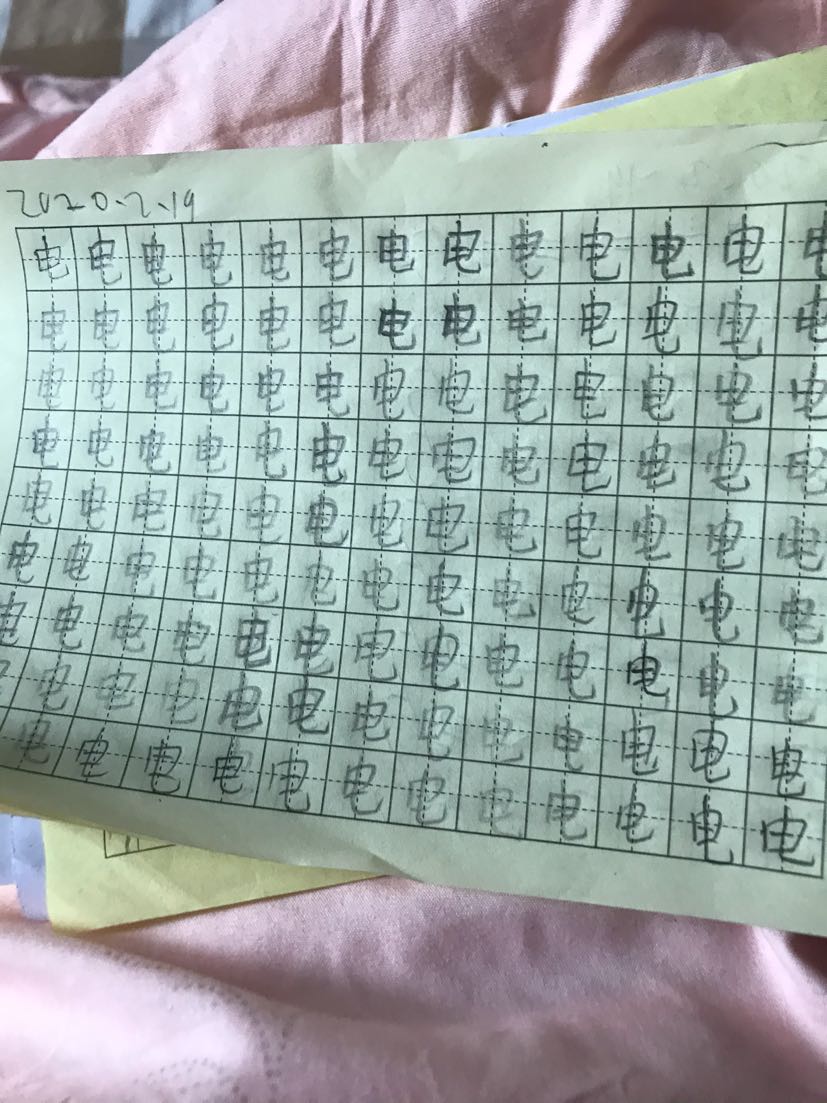 2020.2.19
电电电电电电电电电电电电电
电电电电电电电电电电电电电
电电电电电电电电电电电电电
电电电电电电电电电电电电电
电电电电电电电电电电电电电
电电电电电电电电电电电电电
电电电电电电电电电电电电电
电电电电电电电电电电电电
电电电电电电电电电电电电